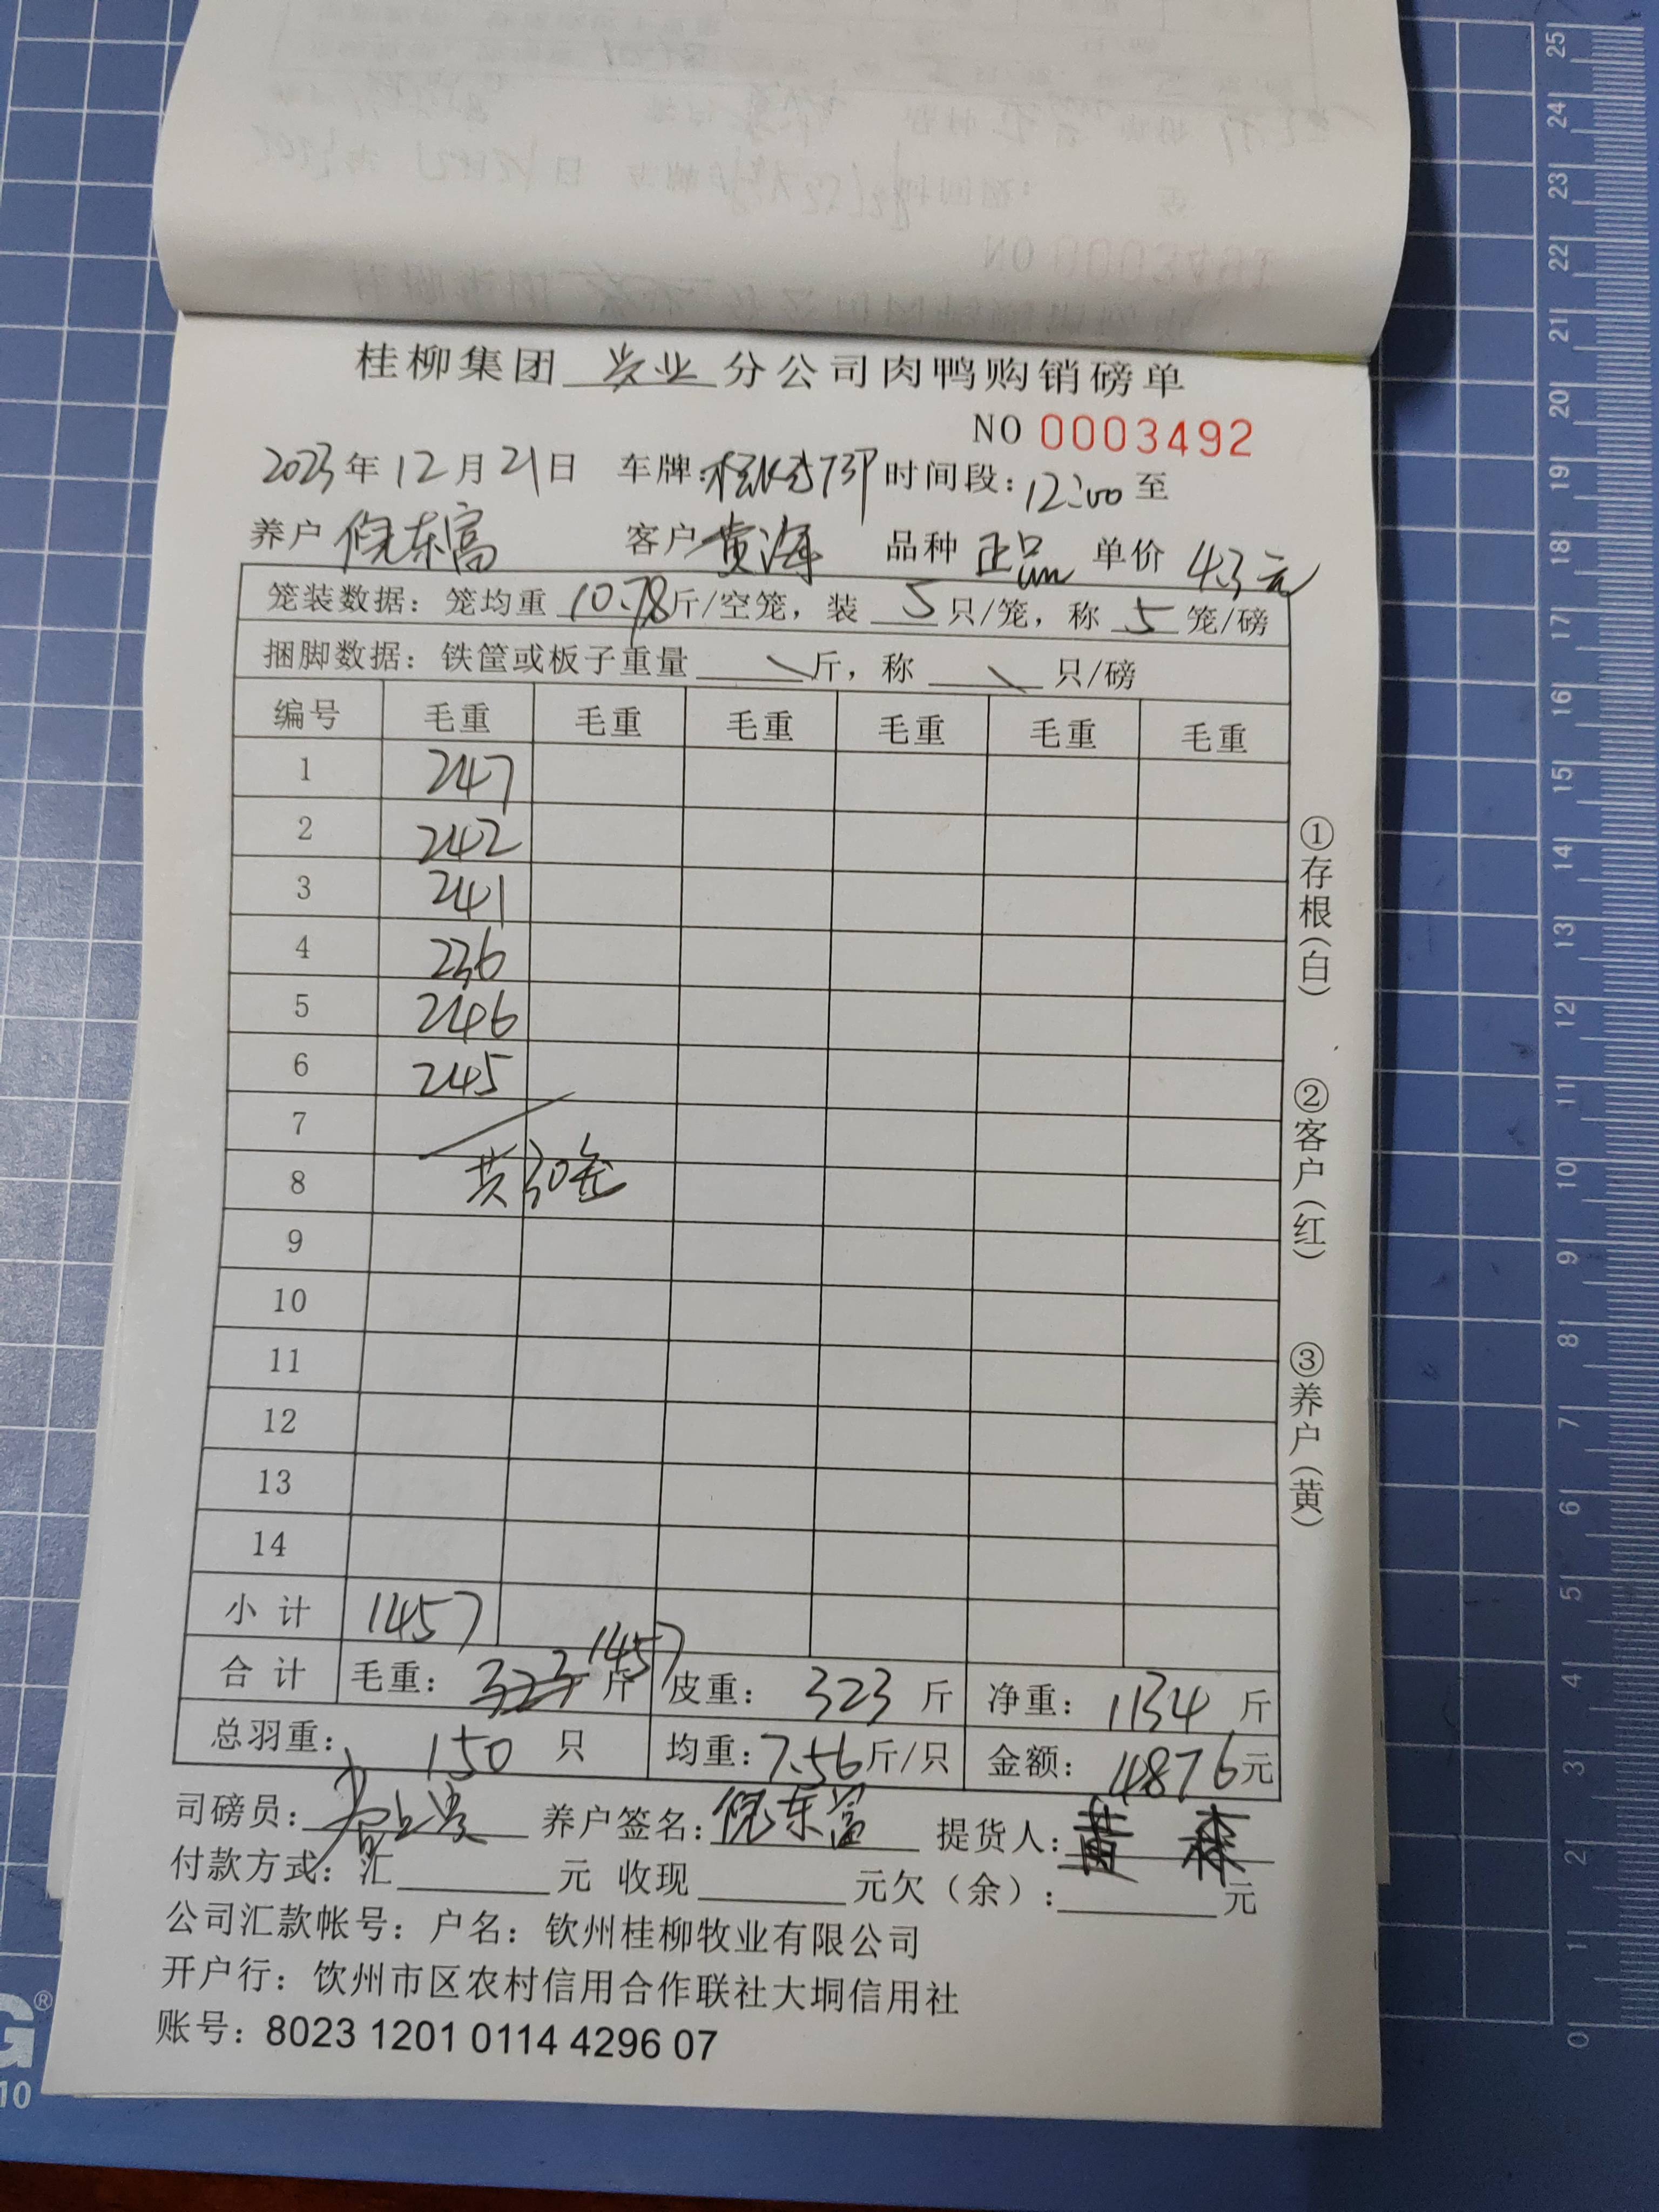 桂柳集团 兴业 分公司肉鸭购销磅单
NO 0003492
2023年12月21日 车牌: 时间段:12:00至
养户 倪东富 客户 黄海 品种 正品 单价 4.3元
笼装数据: 笼均重 10.78 斤/空笼, 装 5 只/笼, 称 5 笼/磅
捆脚数据: 铁筐或板子重量 \ 斤, 称 \ 只/磅
编号 毛重 毛重 毛重 毛重 毛重 毛重
1 247
2 242
3 241
4 236
5 246
6 245
7
8 共30笼
9
10
11
12
13
14
小计 1457
合计 毛重: 323 1457 斤 皮重: 323 斤 净重: 1134 斤
总羽重: 150 只 均重: 7.56 斤/只 金额: 4876 元
司磅员: 养户签名: 倪东富 提货人: 黄 森
付款方式: 汇 元 收现 元欠(余): 元
公司汇款帐号: 户名: 钦州桂柳牧业有限公司
开户行: 饮州市区农村信用合作联社大垌信用社
账号: 8023 1201 0114 4296 07
①存根(白)
②客户(红)
③养户(黄)
25
24
23
22
21
20
19
18
17
16
15
14
13
12
11
10
9
8
7
6
5
4
3
2
1
0
G®
10